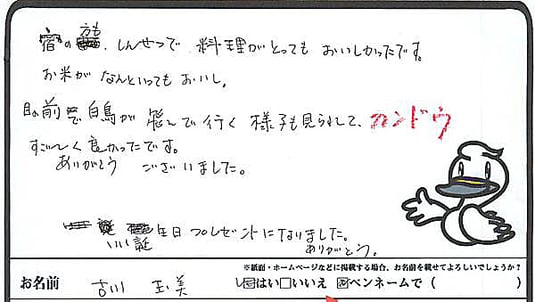 宿の方、しんせつで 料理がとっても おいしかったです。
お米が なんといっても おいし。
目の前で白鳥が 飛んで行く 様子も見られて、カンドウ
すごーく良かったです。
ありがとう ございました。
生日プレゼントになりました。
いい誕
ありがとう。
※紙面・ホームページなどに掲載する場合、お名前を載せてよろしいでしょうか?
お名前 古川 玉美 はい□いいえ ペンネームで( )